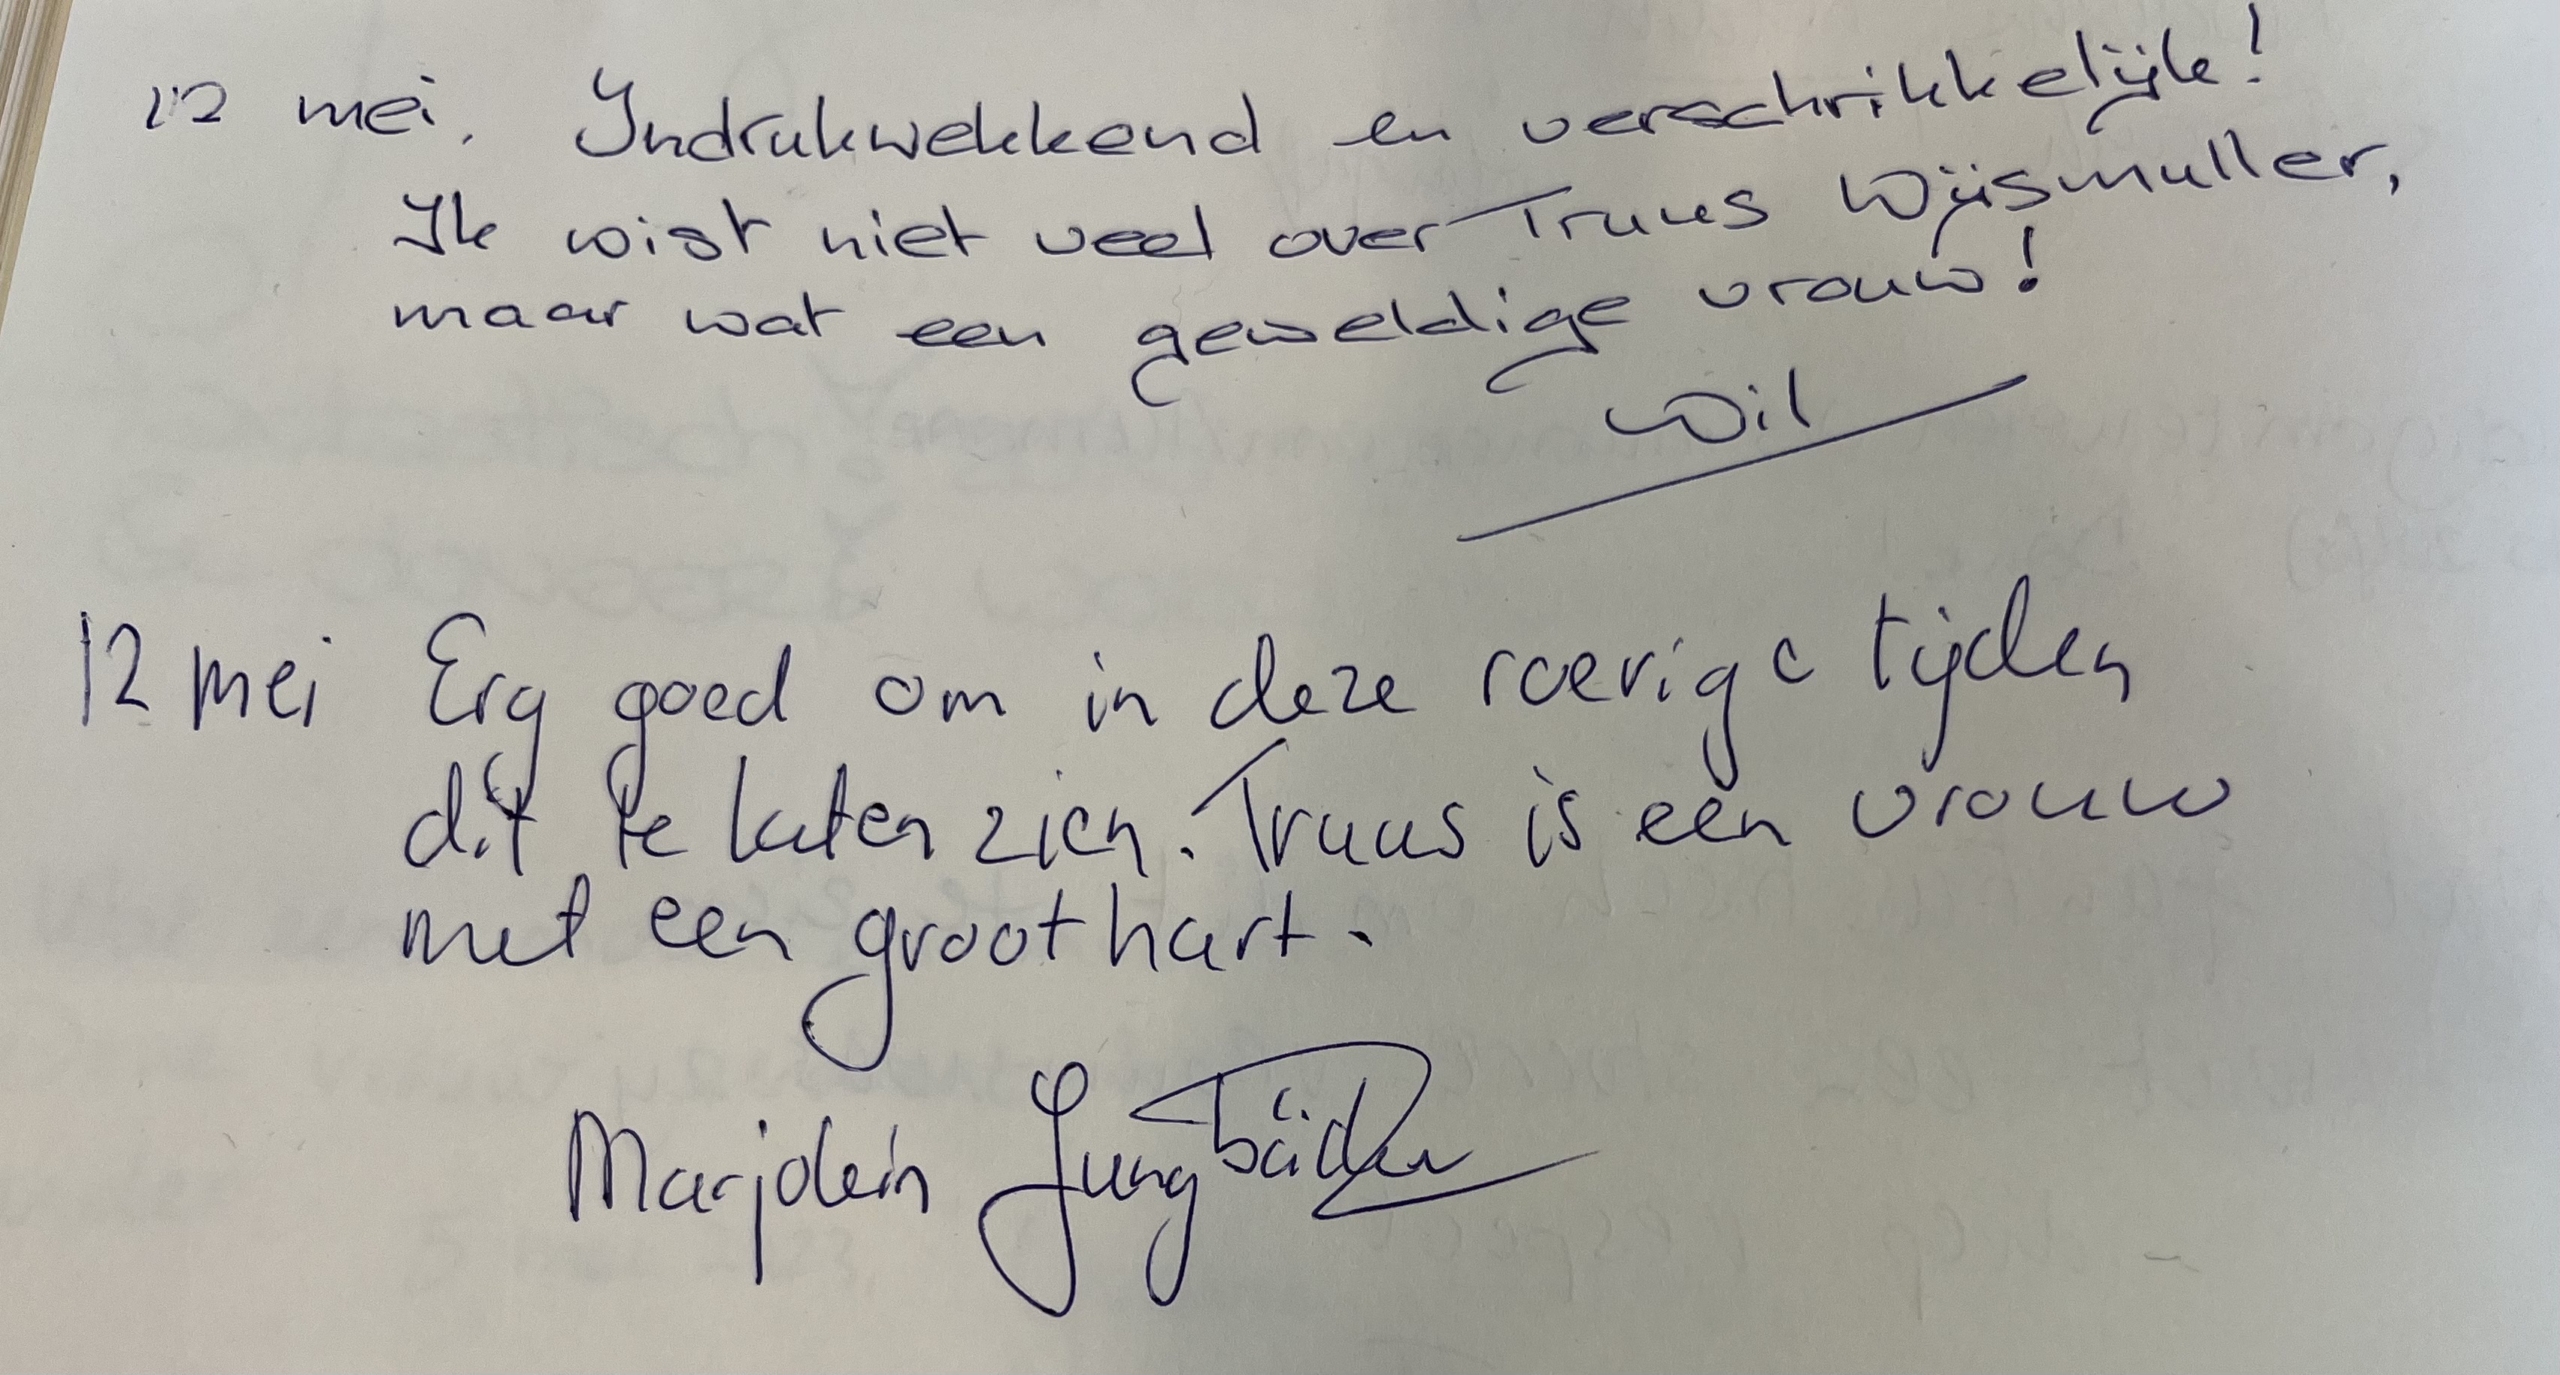 12 mei. Indrukwekkend en verschrikkelijk!
Ik wist niet veel over Truus Wijsmuller,
maar wat een geweldige vrouw!
Wil
12 mei Erg goed om in deze roerige tijden
dit te laten zien. Truus is een vrouw
met een groot hart.
Marjolein